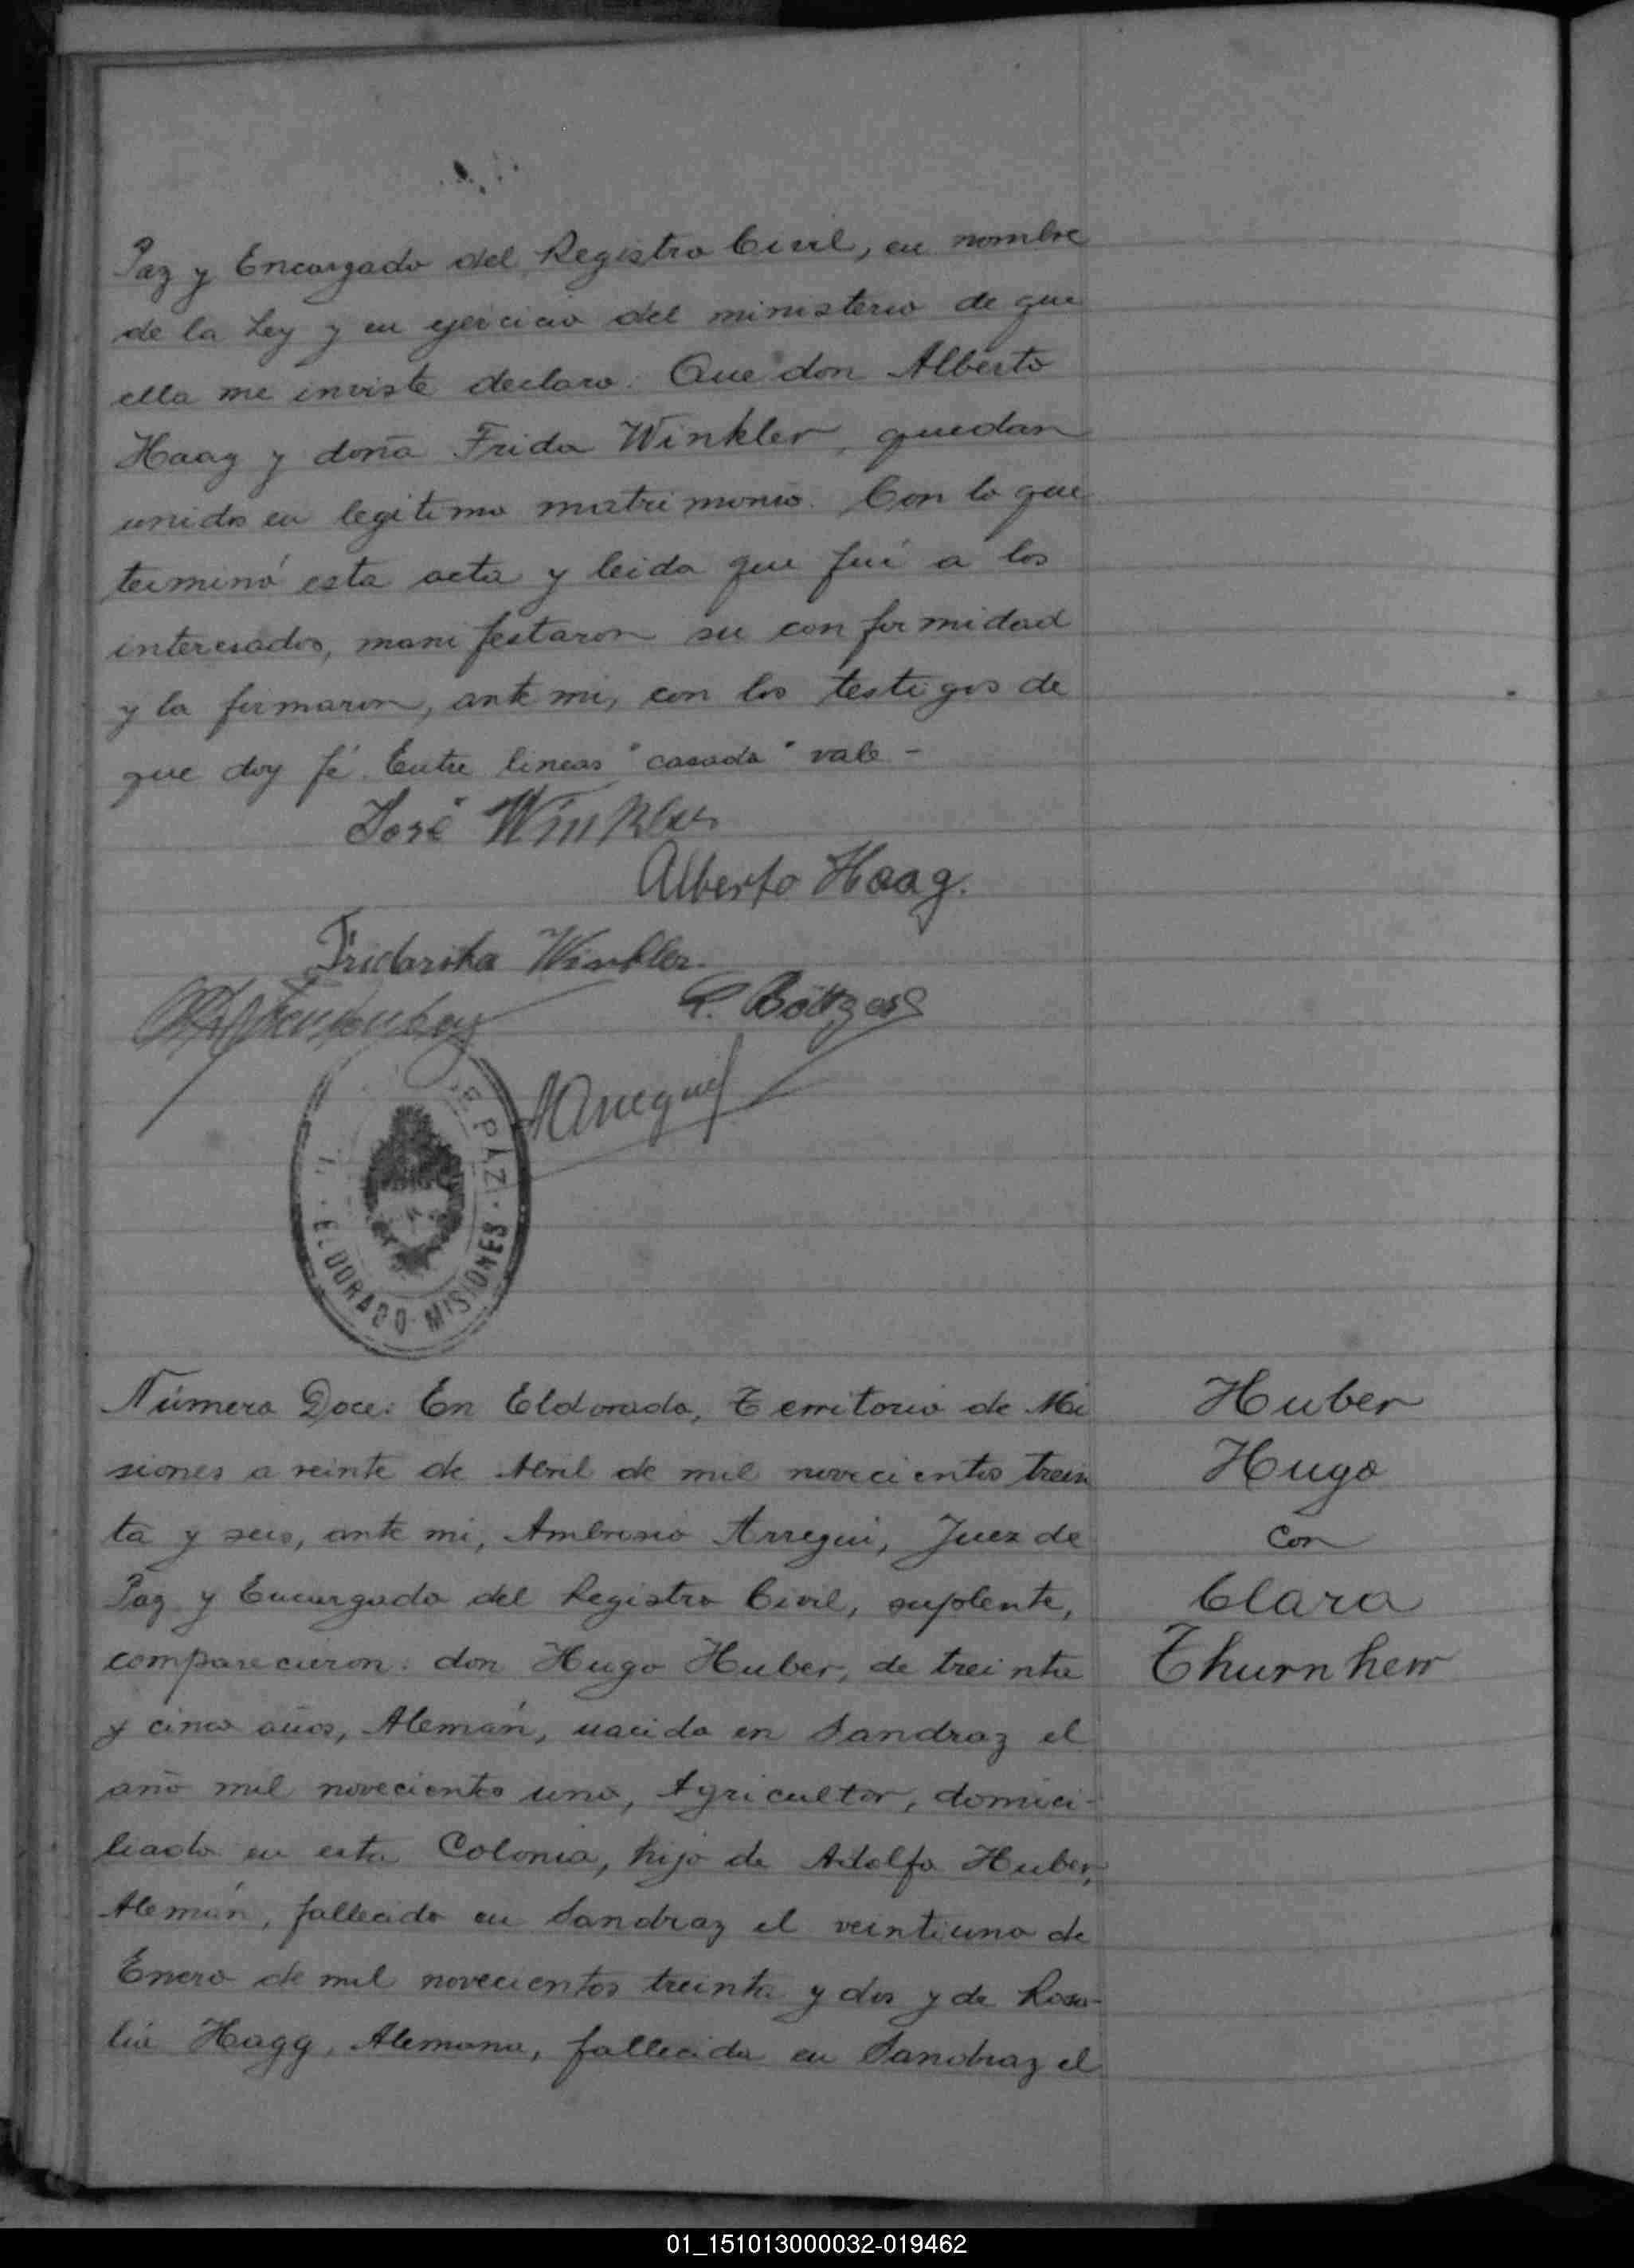 Paz y Encargado del Registro Civil, en nombre
de la Ley y en ejercicio del ministerio de que
ella me inviste declaro: Que don Alberto
Haag y doña Frida Winkler, quedan
unidos en legitimo matrimonio. Con lo que
terminó esta acta y leida que fué a los
interesados, manifestaron su conformidad
y la firmaron, ante mi, con los testigos de
que doy fé. Entre lineas "casada" vale -
José Winkler
Alberto Haag.
Winkler.
DE PAZ · ELDORADO · MISIONES
Número Doce: En Eldorado, Territorio de Mi
siones a veinte de Abril de mil novecientos trein
ta y seis, ante mi, Ambrosio Arregui, Juez de
Paz y Encargado del Registro Civil, suplente,
comparecieron: don Hugo Huber, de treinta
y cinco años, Alemán, nacido en Sandraz el
año mil novecientos uno, Agricultor, domici-
liado en esta Colonia, hijo de Adolfo Huber,
Alemán, fallecido en Sandraz el veintiuno de
Enero de mil novecientos treinta y dos y de Rosa-
lia Hagg, Alemana, fallecida en Sandraz el
Huber
Hugo
con
Clara
Thurnherr
01_151013000032-019462